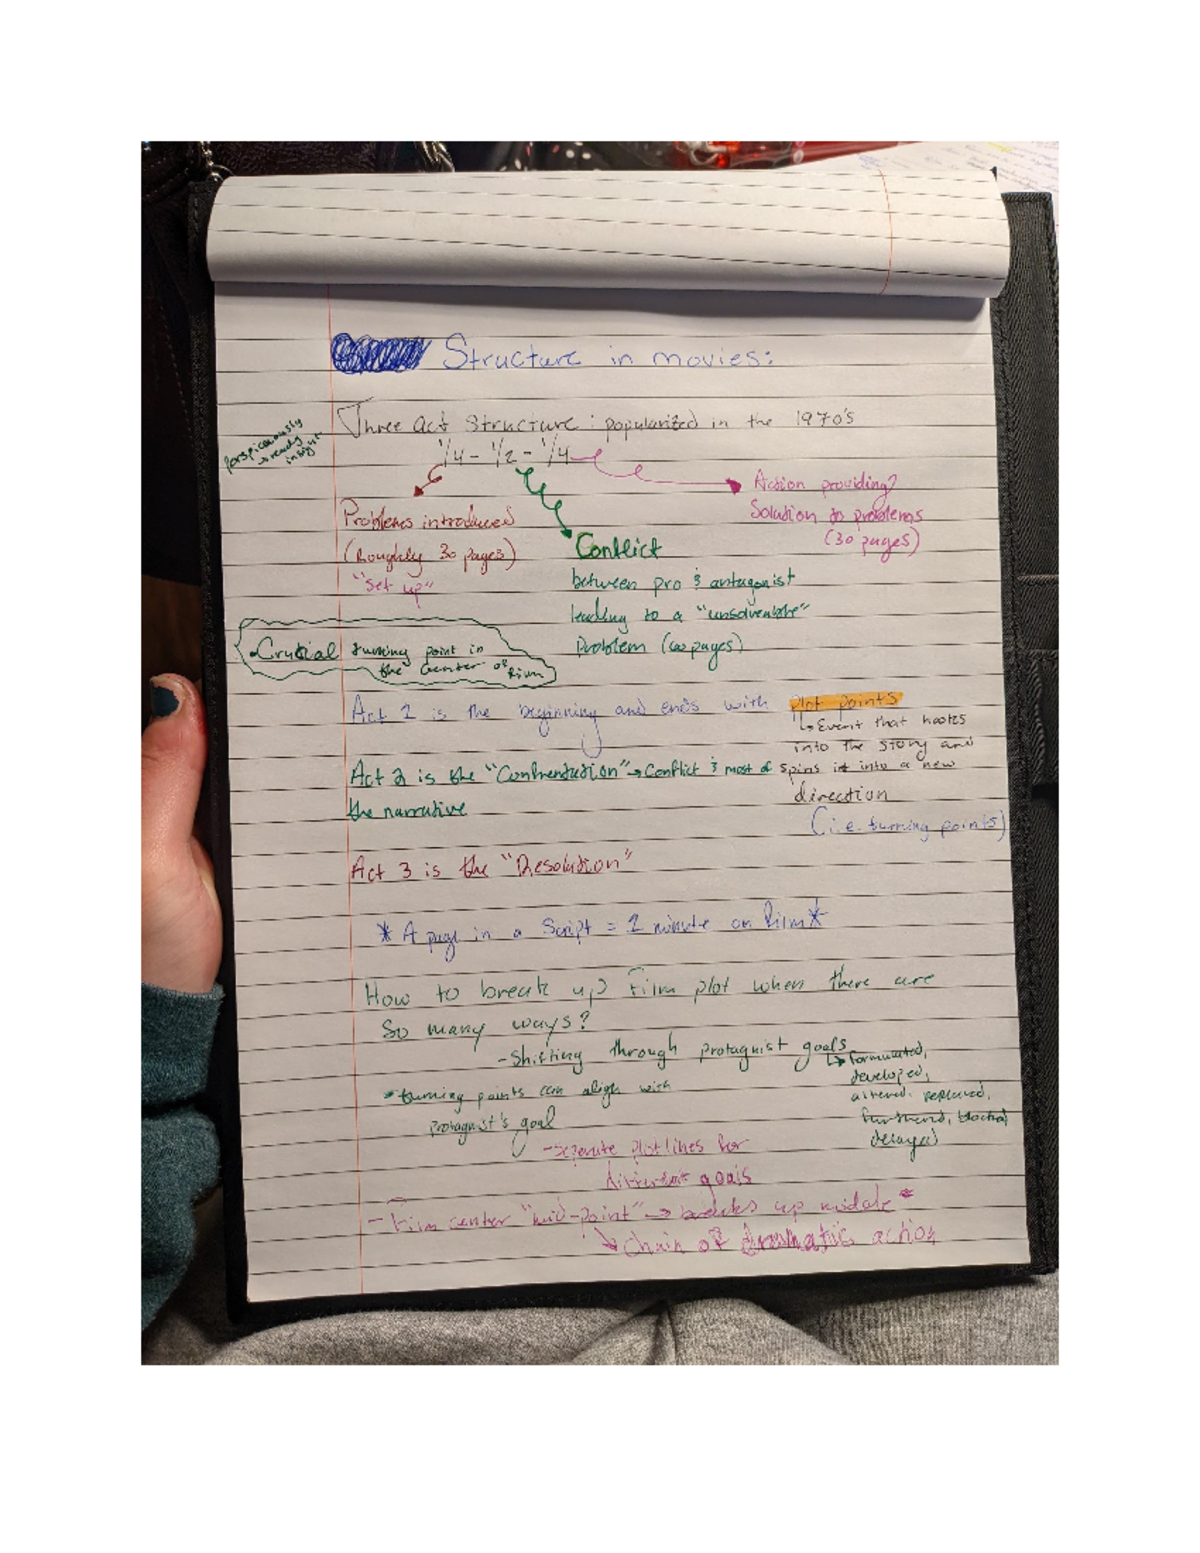 Structure in movies:
Three Act Structure: popularized in the 1970's
perspicaciously
→ ready
insight
1/4 - 1/2 - 1/4
Action providing?
Solution to problems
(30 pages)
Problems introduced
(Roughly 30 pages)
"set up"
Conflict
between pro & antagonist
leading to a "unsolveable"
Problem (60 pages)
•Crutial turning point in
the Center of film
Act 1 is the beginning and ends with plot points
↳ Event that hooks
into the story and
spins it into a new
direction
(i.e. turning points)
Act 2 is the "Confrentation" → Conflict & most of
the narrative
Act 3 is the "Resolution"
* A page in a Script = 1 minute on film *
How to break up film plot when there are
So many ways?
- Shifting through protagnist goals
↳ formulated,
developed,
altered, replaced,
furthered, blocked,
delayed
• turning points can align with
protagnist's goal
- seperate plotlines for
different goals
- Film center "mid-point" → breaks up middle *
↘ Chain of dramatic action